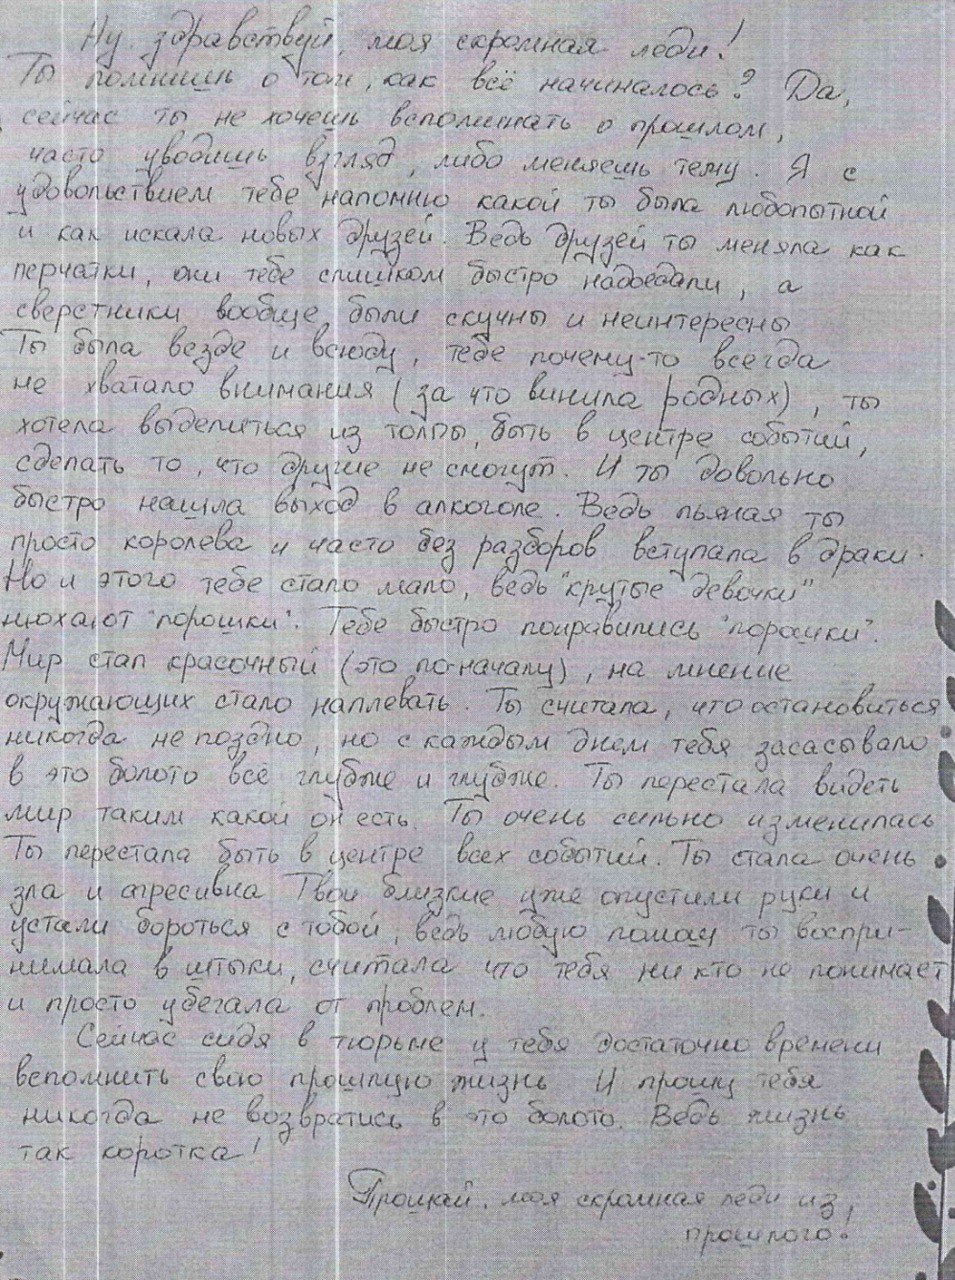 Ну здравствуй, моя скромная леди!
Ты помнишь о том, как всё начиналось? Да,
сейчас ты не хочешь вспоминать о прошлом,
часто уводишь взгляд, либо меняешь тему. Я с
удовольствием тебе напомню какой ты была любопытной
и как искала новых друзей. Ведь друзей ты меняла как
перчатки, они тебе слишком быстро надоедали, а
сверстники вообще были скучны и неинтересны
Ты была везде и всюду, тебе почему-то всегда
не хватало внимания (за что винила родных), ты
хотела выделиться из толпы, быть в центре событий,
сделать то, что другие не смогут. И ты довольно
быстро нашла выход в алкоголе. Ведь пьяная ты
просто королева и часто без разборов вступала в драки.
Но и этого тебе стало мало, ведь "крутые девочки"
нюхают "порошки". Тебе быстро понравились "порошки".
Мир стал красочный (это по-началу), на мнение
окружающих стало наплевать. Ты считала, что остановиться
никогда не поздно, но с каждым днем тебя засасывало
в это болото всё глубже и глубже. Ты перестала видеть
мир таким какой он есть. Ты очень сильно изменилась
Ты перестала быть в центре всех событий. Ты стала очень
зла и агресивна Твои близкие уже опустили руки и
устали бороться с тобой, ведь любую помощ ты воспри-
нимала в штыки, считала что тебя ни кто не понимает
и просто убегала от проблем.
Сейчас сидя в тюрьме у тебя достаточно времени
вспомнить свою прошлую жизнь И прошу тебя
никогда не возвратись в это болото. Ведь жизнь
так коротка!
Прощай, моя скромная леди из
прошлого!